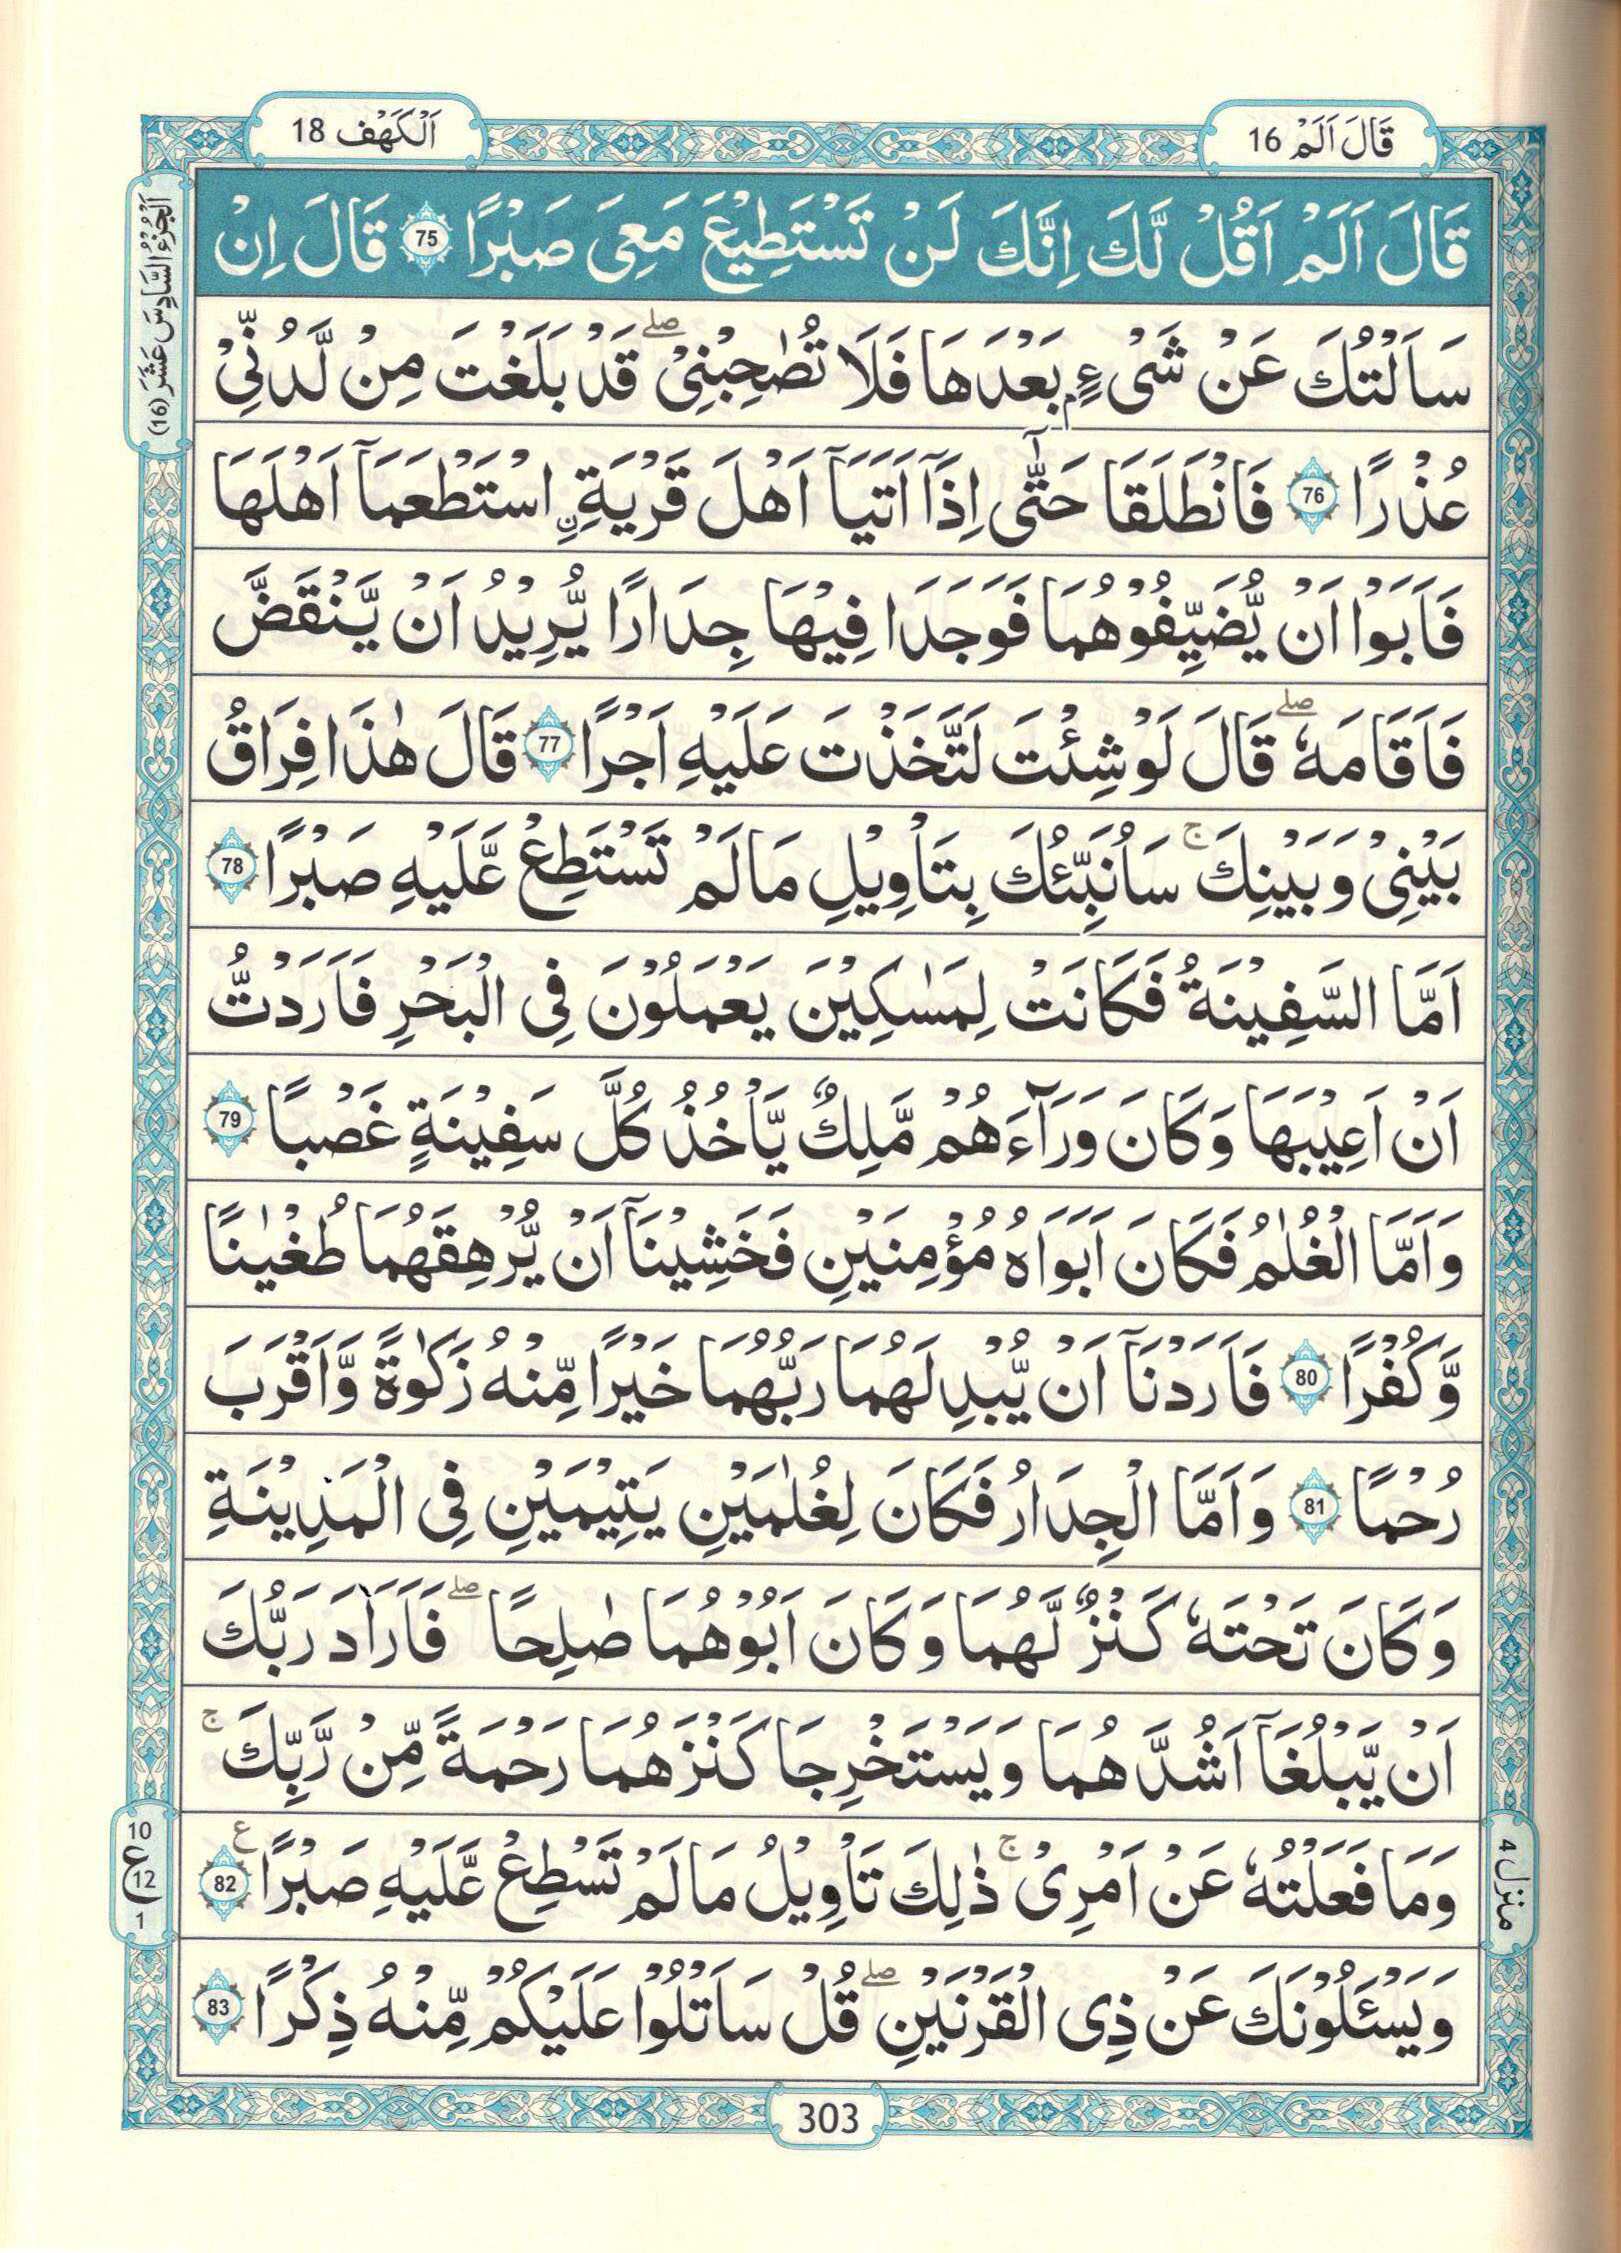 قَالَ اَلَمْ 16
اَلْكَهْف 18
اَلْجُزْءُ السَّادِسَ عَشَرَ (16)
قَالَ اَلَمْ اَقُلْ لَّكَ اِنَّكَ لَنْ تَسْتَطِيْعَ مَعِىَ صَبْرًا 75 قَالَ اِنْ
سَاَلْتُكَ عَنْ شَىْءٍۭ بَعْدَهَا فَلَا تُصٰحِبْنِىْ ۖ قَدْ بَلَغْتَ مِنْ لَّدُنِّىْ
عُذْرًا 76 فَانْطَلَقَا حَتّٰٓى اِذَآ اَتَيَآ اَهْلَ قَرْيَةِ ۨاسْتَطْعَمَآ اَهْلَهَا
فَاَبَوْا اَنْ يُّضَيِّفُوْهُمَا فَوَجَدَا فِيْهَا جِدَارًا يُّرِيْدُ اَنْ يَّنْقَضَّ
فَاَقَامَهٗ ۖ قَالَ لَوْ شِئْتَ لَتَّخَذْتَ عَلَيْهِ اَجْرًا 77 قَالَ هٰذَا فِرَاقُ
بَيْنِىْ وَبَيْنِكَ ۚ سَاُنَبِّئُكَ بِتَاْوِيْلِ مَا لَمْ تَسْتَطِعْ عَّلَيْهِ صَبْرًا 78
اَمَّا السَّفِيْنَةُ فَكَانَتْ لِمَسٰكِيْنَ يَعْمَلُوْنَ فِى الْبَحْرِ فَاَرَدْتُّ
اَنْ اَعِيْبَهَا وَكَانَ وَرَآءَهُمْ مَّلِكٌ يَّاْخُذُ كُلَّ سَفِيْنَةٍ غَصْبًا 79
وَاَمَّا الْغُلٰمُ فَكَانَ اَبَوَاهُ مُؤْمِنَيْنِ فَخَشِيْنَآ اَنْ يُّرْهِقَهُمَا طُغْيٰنًا
وَّكُفْرًا 80 فَاَرَدْنَآ اَنْ يُّبْدِلَهُمَا رَبُّهُمَا خَيْرًا مِّنْهُ زَكٰوةً وَّاَقْرَبَ
رُحْمًا 81 وَاَمَّا الْجِدَارُ فَكَانَ لِغُلٰمَيْنِ يَتِيْمَيْنِ فِى الْمَدِيْنَةِ
وَكَانَ تَحْتَهٗ كَنْزٌ لَّهُمَا وَكَانَ اَبُوْهُمَا صٰلِحًا ۖ فَاَرَادَ رَبُّكَ
اَنْ يَّبْلُغَآ اَشُدَّهُمَا وَيَسْتَخْرِجَا كَنْزَهُمَا رَحْمَةً مِّنْ رَّبِّكَ ۚ
وَمَا فَعَلْتُهٗ عَنْ اَمْرِىْ ۚ ذٰلِكَ تَاْوِيْلُ مَا لَمْ تَسْطِعْ عَّلَيْهِ صَبْرًا ع 82
10
ع 12
1
منزل ٤
وَيَسْـَٔلُوْنَكَ عَنْ ذِى الْقَرْنَيْنِ ۖ قُلْ سَاَتْلُوْا عَلَيْكُمْ مِّنْهُ ذِكْرًا 83
303